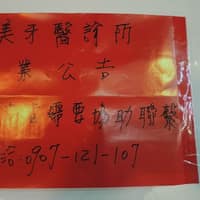 美牙醫診所
業公告
需要協助聯繫
洽:0907-121-107